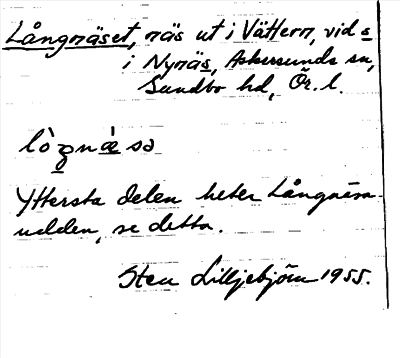 Långnäset, näs ut i Vättern, vid s
i Nynäs, Askersunds sn,
Sundbo hd, Ör. l.
lògnǽ sə
Yttersta delen heter Långnäsa-
udden, se detta.
Sten Lilljebjörn 1955.